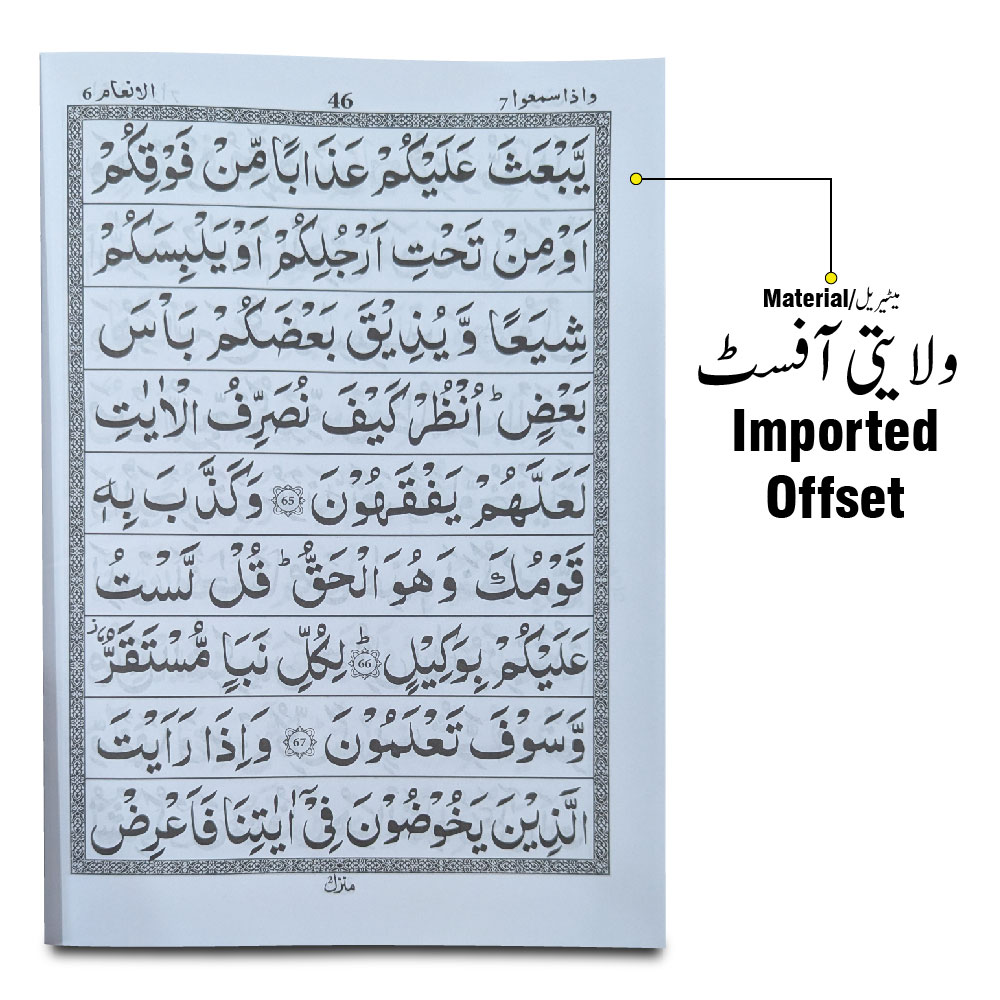 الانعام 6
46
واذاسمعوا 7
يَّبْعَثَ عَلَيْكُمْ عَذَابًا مِّنْ فَوْقِكُمْ
اَوْ مِنْ تَحْتِ اَرْجُلِكُمْ اَوْ يَلْبِسَكُمْ
شِيَعًا وَّ يُذِيْقَ بَعْضَكُمْ بَاْسَ
بَعْضٍ ؕ اُنْظُرْ كَيْفَ نُصَرِّفُ الْاٰيٰتِ
لَعَلَّهُمْ يَفْقَهُوْنَ 65 وَ كَذَّبَ بِهٖ
قَوْمُكَ وَ هُوَ الْحَقُّ ؕ قُلْ لَّسْتُ
عَلَيْكُمْ بِوَكِيْلٍ ؕ 66 لِكُلِّ نَبَاٍ مُّسْتَقَرٌّ ؗ
وَّ سَوْفَ تَعْلَمُوْنَ 67 وَ اِذَا رَاَيْتَ
الَّذِيْنَ يَخُوْضُوْنَ فِيْۤ اٰيٰتِنَا فَاَعْرِضْ
منزل
Material/میٹیریل
ولایتی آفسٹ
Imported
Offset